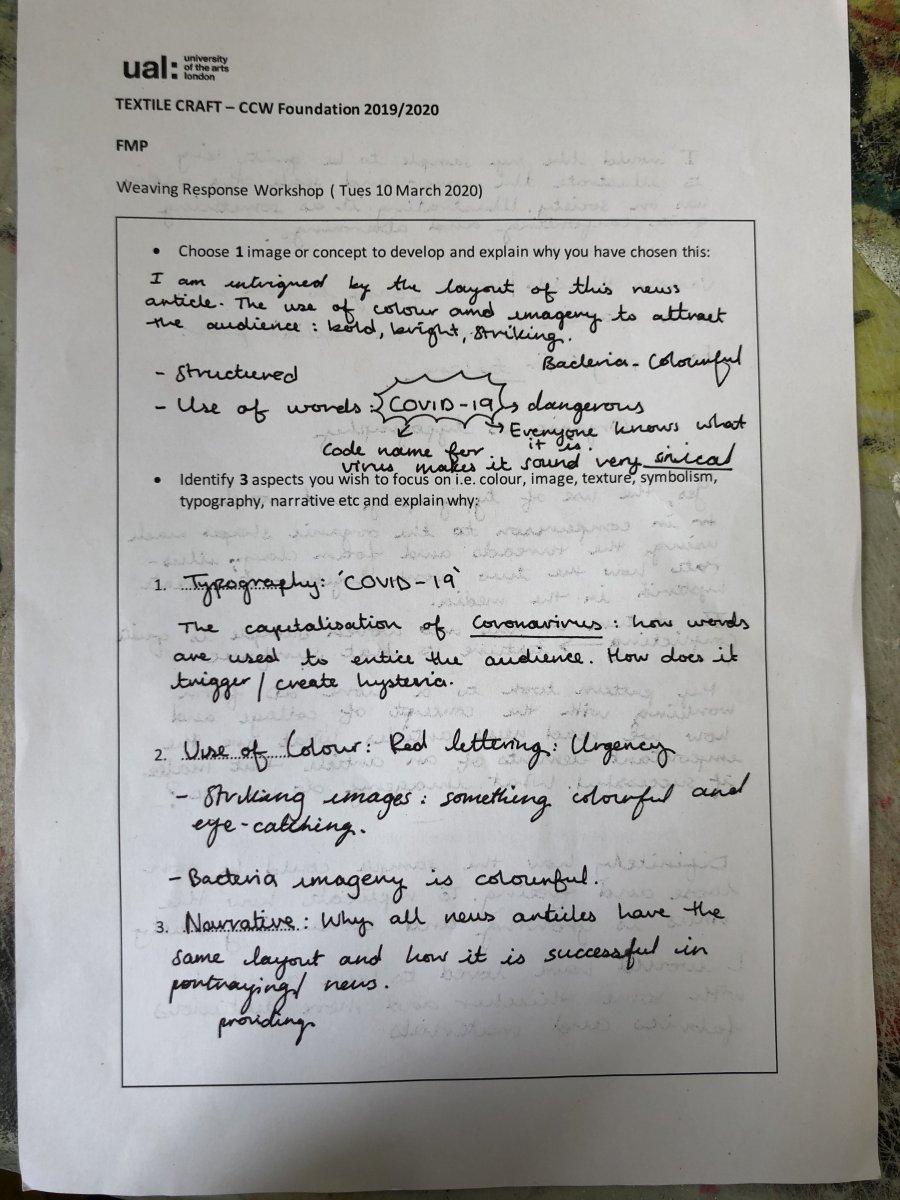 ual: university
of the arts
london
TEXTILE CRAFT – CCW Foundation 2019/2020
FMP
Weaving Response Workshop ( Tues 10 March 2020)
• Choose 1 image or concept to develop and explain why you have chosen this:
I am intrigued by the layout of this news
article. The use of colour and imagery to attract
the audience : bold, bright, striking.
Bacteria - Colourful
- Structured
- Use of words : COVID-19 → dangerous
→ Everyone knows what
it is.
Code name for
virus makes it sound very sinical
• Identify 3 aspects you wish to focus on i.e. colour, image, texture, symbolism,
typography, narrative etc and explain why:
1. Typography: 'COVID-19'
The capitalisation of Coronavirus : how words
are used to entice the audience. How does it
trigger / create hysteria.
2. Use of Colour: Red lettering: Urgency
- Striking images : something colourful and
eye-catching.
- Bacteria imagery is colourful.
3. Narrative : Why all news articles have the
same layout and how it is successful in
portraying/ news.
providing